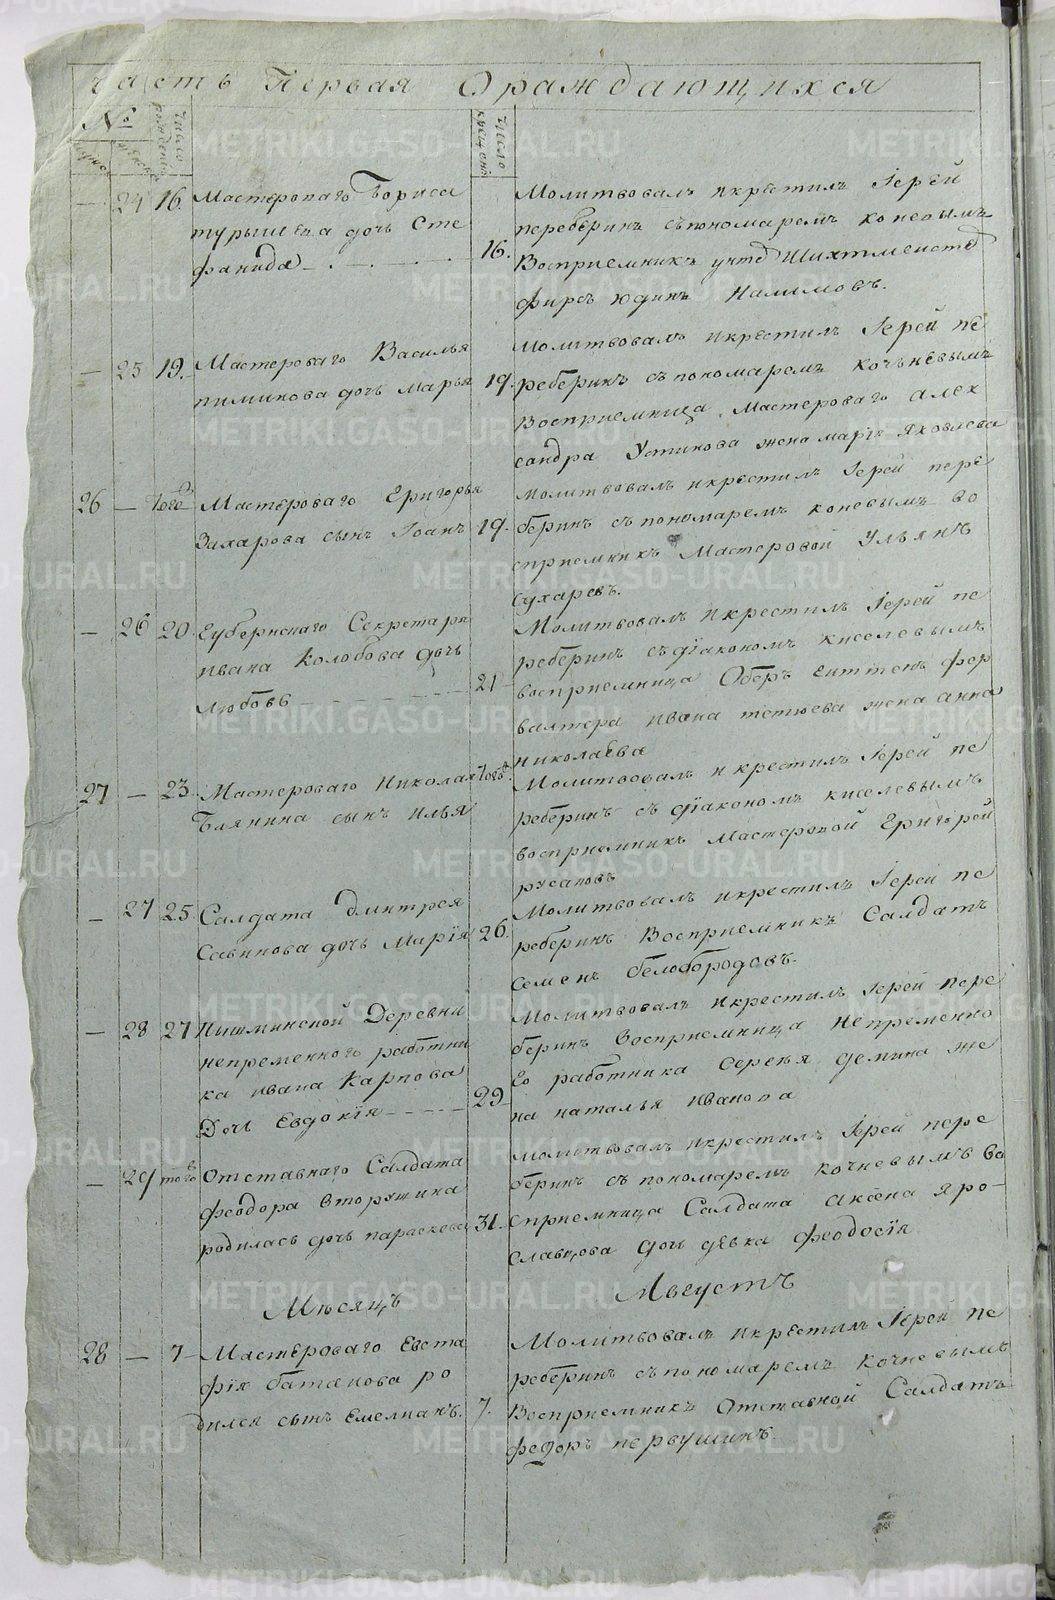 часть Первая Ораждающихся
№
число рождения
число крещенія
— 24 16. Мастероваго Бориса
турышева дочь Сте
фанида 16.
Молитвовалъ икрестилъ Іерей
переберинъ съпономаремъ коневымъ
Восприемникъ унте Шихтмейсте
фирсъ юдинъ Налимовъ.
— 25 19. Мастероваго Василья
пиминова дочь марья 19.
молитвовалъ икрестилъ Іерей пе
реберинъ съпономаремъ кочьневымъ
Восприемница Мастероваго алек
сандра Устинова жена марія Яковлева
26 — того Мастероваго Григорья
Захарова сынъ Іоанъ 19.
молитвовалъ икрестилъ Іерей пере
беринъ съпономаремъ коневымъ во
сприемникъ Мастеровой Ульянъ
сухаревъ.
— 26 20. Губернскаго Секретаря
ивана Колобова дочь
любовь 21
Молитвовалъ икрестилъ Іерей пе
реберинъ съдіакономъ киселевымъ
восприемница Оберъ гиттенъ фер
валтера ивана тетюева жена анна
николаева
27 — 23. Мастероваго Николая тогож.
Блянина сынъ илья
Молитвовалъ икрестилъ Іерей пе
реберинъ съдіакономъ киселевымъ
восприемникъ мастеровой Григорей
русановъ
— 27 25. Салдата дмитрея
Савинова дочь Марія 26.
молитвовалъ икрестилъ Іерей пе
реберинъ Восприемникъ Салдатъ
семенъ белобородовъ.
— 28 27 Пишминской Деревни
непременного работни
ка ивана Карпова
Дочь Евдокія 29
Молитвовалъ икрестилъ Іерей пере
беринъ восприемница непременно
го работника Сергея демина же
на наталья иванова
— 29 того Отставнаго Салдата
феодора вторушина
родилась дочь параскева 31.
молитвовалъ икрестилъ Іерей пере
беринъ съпономаремъ кочневымъ во
сприемница Салдата аксена яро-
славцова дочь девка феодосія
Мѣсяцъ Августъ
28 — 7 Мастероваго Евста
фія батакова ро
дился сынъ емелианъ. 7.
Молитвовалъ икрестилъ Іерей пе
реберинъ съпономаремъ кочневымъ
Восприемникъ Отставной Салдатъ
федоръ первушинъ.
METRIKI.GASO-URAL.RU